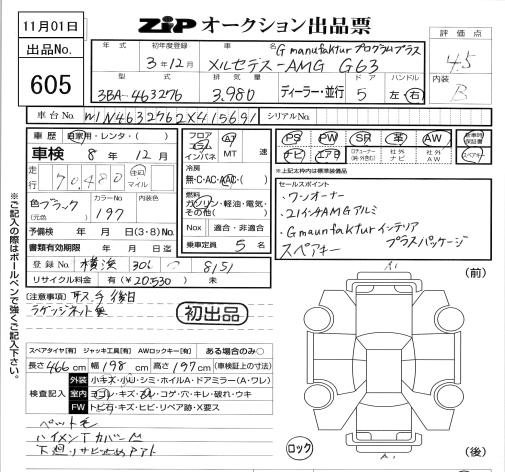 11月01日
ZIP オークション出品票
評価点
4.5
出品No.
605
年式 初年度登録 車名
3年12月 メルセデス-AMG G63
G manufaktur プログラムプラス
型式 排気量 ドア ハンドル
3BA-463276 3,980 ディーラー・並行 5 左・右
内装
B
車台No. W1N4632762X415691 シリアルNo.
車歴 自家用・レンタ・( )
車検 8年 12月
走行 70,480 km マイル
色 ブラック (元色) カラーNo. 197 内装色
予備検 年 月 日(3・8)
書類有効期限 年 月 日迄
登録No. 横浜 306 8151
リサイクル料金 有(¥20,530) 未
フロア コラム インパネ AT MT 速
冷房 無・C・AC・AAC・( )
燃料 ガソリン・軽油・電気・その他( )
Nox 適合・非適合
乗車定員 5 名
PS PW SR 革 AW
ナビ エアB 社外ナビ 社外AW
新車時保証書
スペアキー
※上記太枠内は標準装備品
セールスポイント
・ワンオーナー
・21インチAMGアルミ
・G manufakturインテリア
プラスパッケージ
スペアキー
[注意事項] 取、ス、ラ 後日
ラゲッジネット無
初出品
スペアタイヤ[有] ジャッキ工具[有] AWロックキー[有] ある場合のみ○
長さ466cm 幅198cm 高さ197cm (車検証上の寸法)
検査記入
外装 小キズ・小U・シミ・ホイルA・ドアミラー(A・ワレ)
室内 ヨゴレ・キズ・スレ・コゲ・穴・キレ・破れ・ウキ
FW トビ石・キズ・ヒビ・リペア跡・X要ス
ペット毛
ハイマウントカバー
下廻りサビ止めアト
(前)
(後)
A1
A1
ロック
※ご記入の際はボールペンで強くご記入下さい。